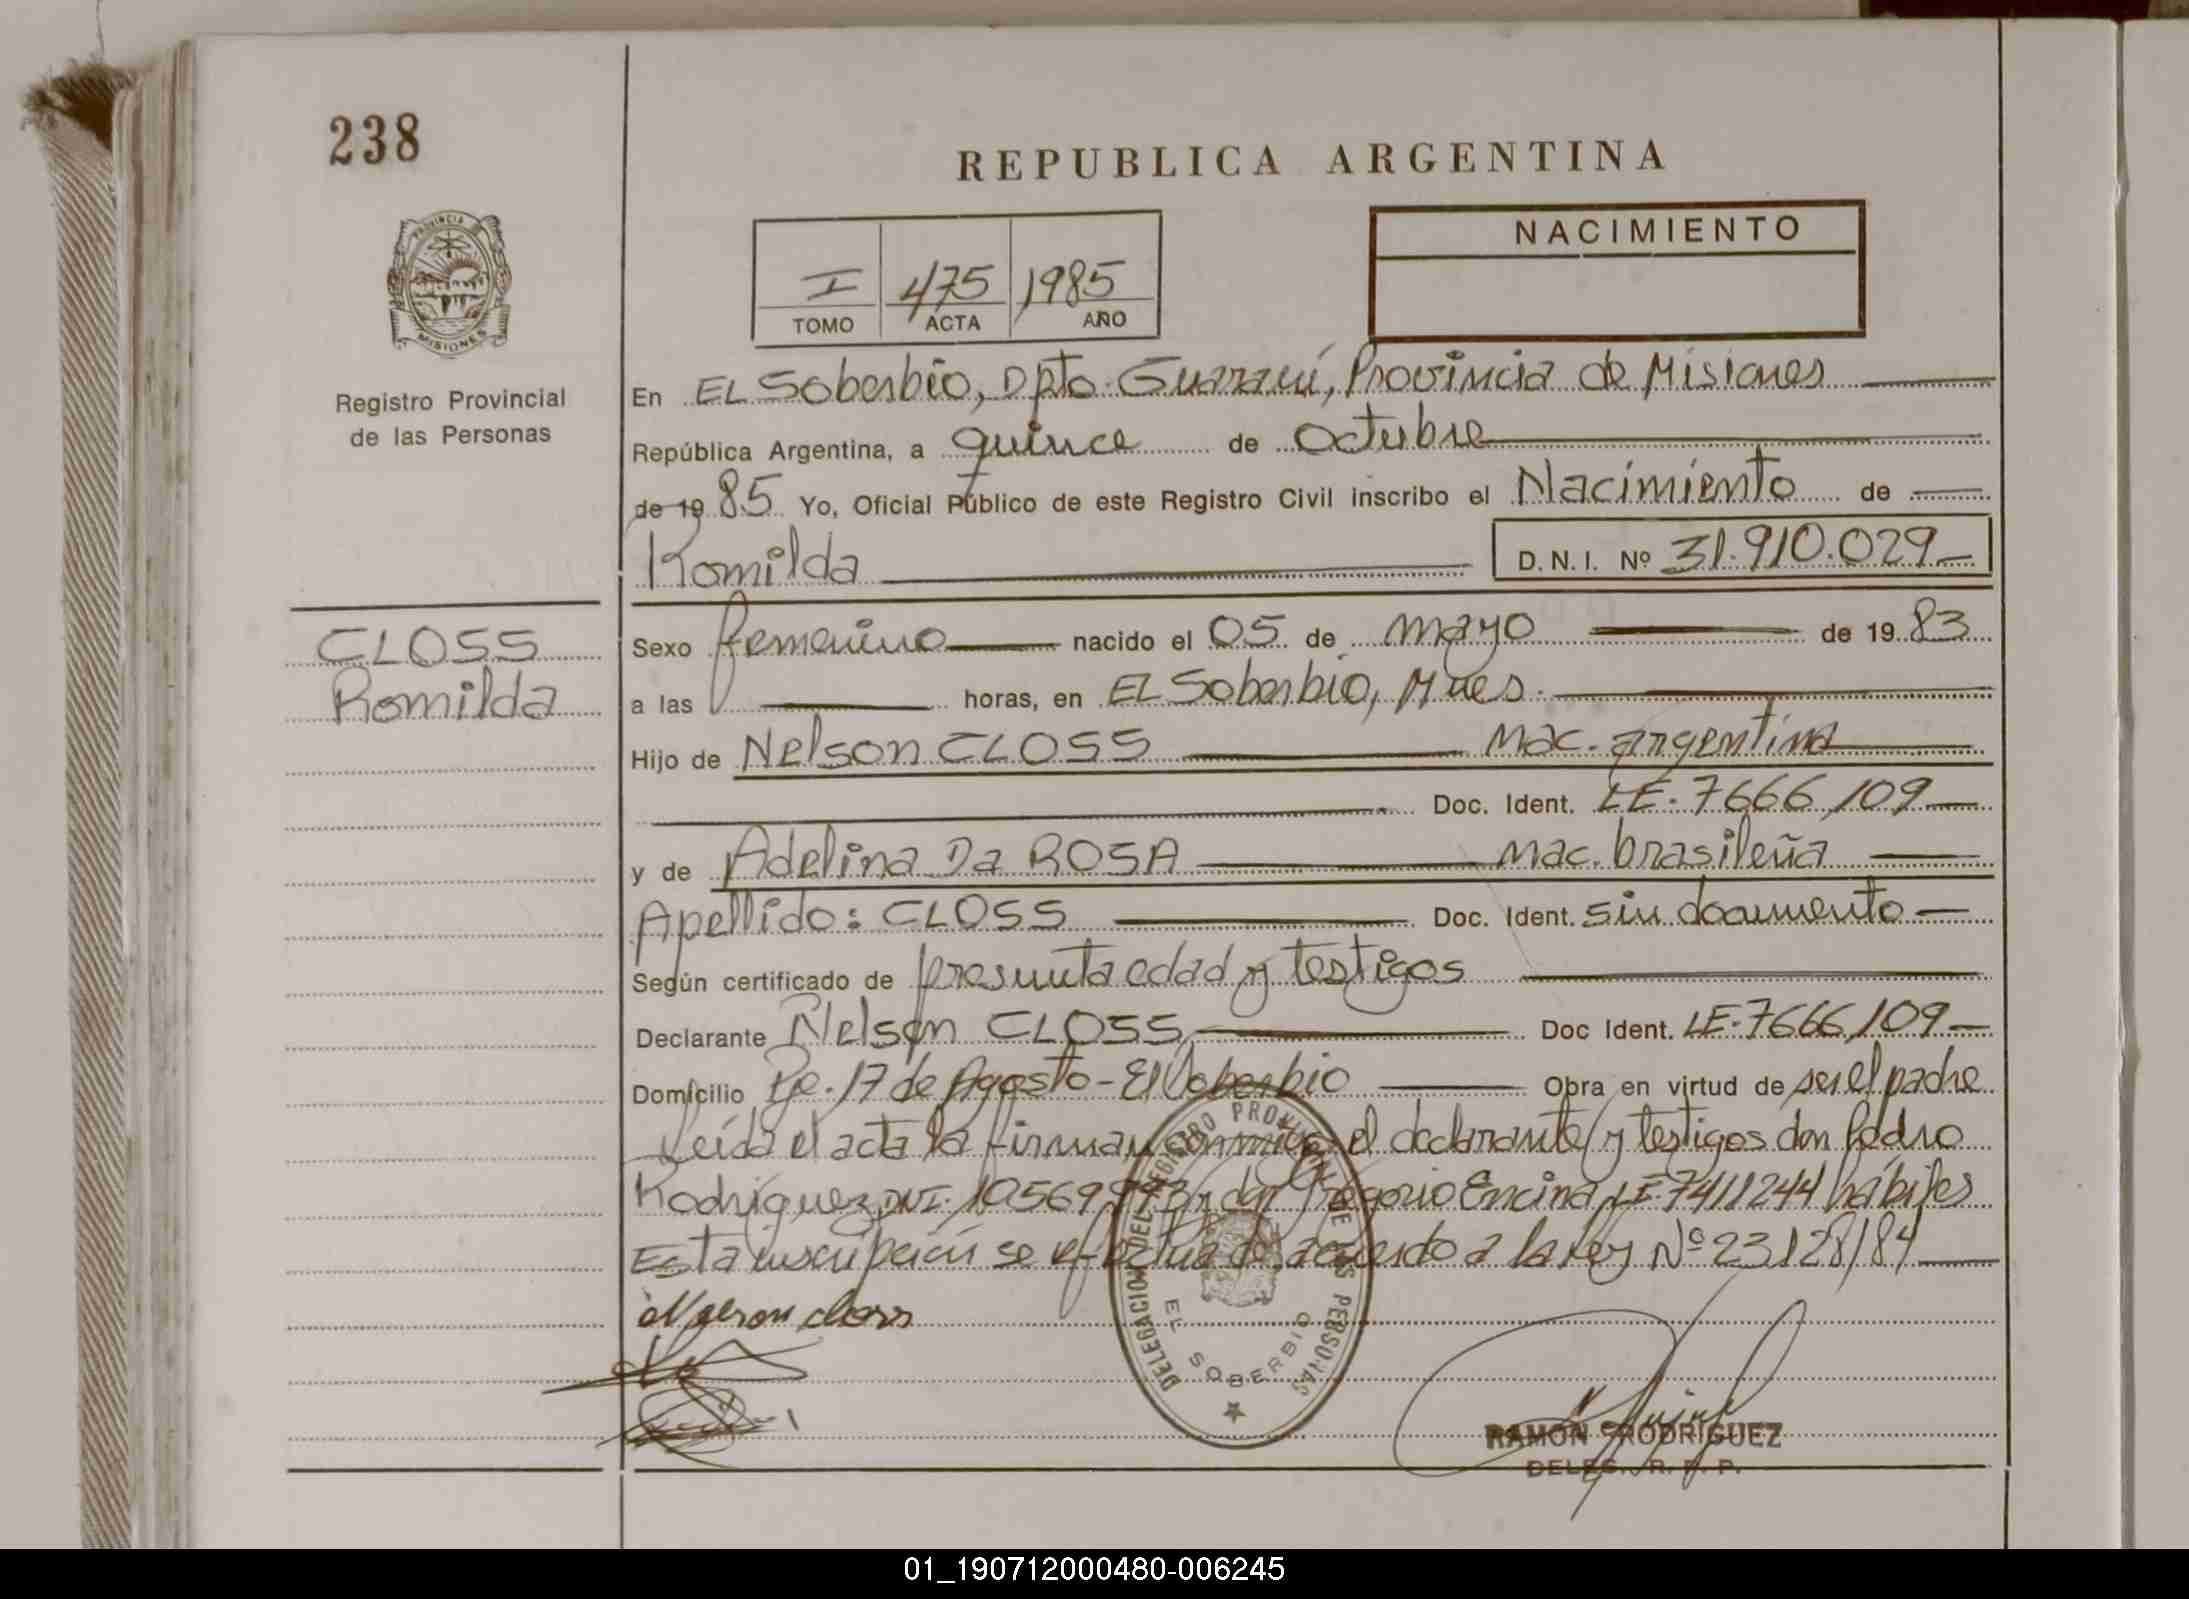 238
REPUBLICA ARGENTINA
PROVINCIA
MISIONES
Registro Provincial
de las Personas
I 475 1985
TOMO ACTA AÑO
NACIMIENTO
En EL Soberbio, Dpto. Guaraní, Provincia de Misiones
República Argentina, a quince de octubre
de 1985 Yo, Oficial Público de este Registro Civil inscribo el Nacimiento de
Romilda D.N.I. Nº 31.910.029
CLOSS
Romilda
Sexo femenino nacido el 05 de mayo de 1983
a las horas, en EL Soberbio, Mnes.
Hijo de Nelson CLOSS nac. argentina
Doc. Ident. LE. 7666109
y de Adelina Da ROSA nac. brasileña
Apellido: CLOSS Doc. Ident. sin documento
Según certificado de presunta edad y testigos
Declarante Nelson CLOSS, Doc Ident. LE. 7666109
Domicilio Pje. 17 de Agosto - El Soberbio Obra en virtud de ser el padre
Leída el acta la firman conmigo el declarante y testigos don Pedro
Rodriguez DNI. y don Gregorio Encina LE. 7411244 hábiles
Esta inscripción se efectua de acuerdo a la ley Nº 23128/84
DELEGACION DEL REGISTRO PROVINCIAL DE LAS PERSONAS
EL SOBERBIO
RAMON RODRIGUEZ
DELEG. R. P. P.
01_190712000480-006245